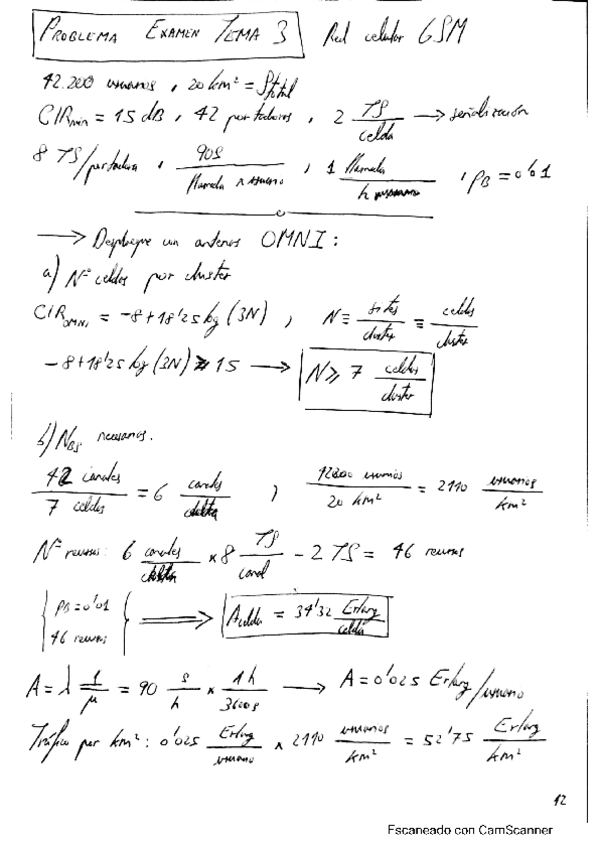 PROBLEMA EXAMEN TEMA 3 Red celular GSM
42.200 usuarios, 20 km² = Stotal
CIRmin = 15 dB, 42 portadoras, 2 TS/celda → señalización
8 TS/portadora, 90s/llamada x usuario, 1 llamada/h usuario, PB = 0'01
→ Despliegue con antenas OMNI:
a) Nº celdas por cluster
CIR OMNI = -8 + 18'25 log (3N), N ≡ sites/cluster ≡ celdas/cluster
-8 + 18'25 log (3N) ≥ 15 → N ≥ 7 celdas/cluster
b) NBS necesarios.
42 canales/7 celdas = 6 canales/celda, usuarios/20 km² = 2110 usuarios/km²
Nº recursos: 6 canales/celda x 8 TS/canal - 2 TS = 46 recursos
{ PB = 0'01
46 recursos } ⟹ Acelda = 34'32 Erlang/celda
A = λ 1/μ = 90 s/h x 1h/3600s → A = 0'025 Erlang/usuario
Tráfico por km²: 0'025 Erlang/usuario x 2110 usuarios/km² = 52'75 Erlang/km²
12
Escaneado con CamScanner